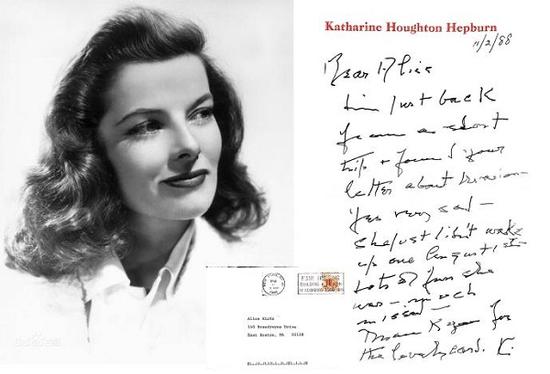 Katharine Houghton Hepburn
11/2/88
Dear Alice
I'm just back
from a short
trip + found your
letter about
Yes very sad -
She just didn't wake
up one August 1st -
Lots of fun she
was - much
missed -
Thank you for
the lovely card. K.
Alice
Drive
East Boston, MA 02128